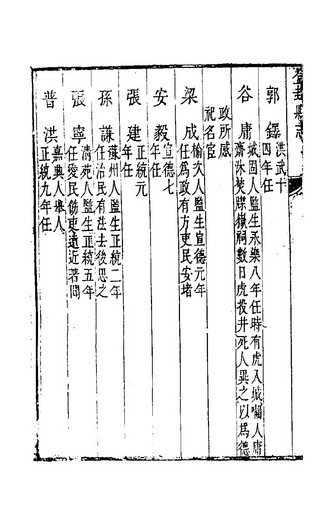 郭鐸洪武十四年任
谷庸城固人監生永樂八年任時有虎入城囓人庸齋沐焚牒禱祠數日虎投井死人異之以為德政所感
祀名宦
梁成榆次人監生宣德元年任為政有方吏民安堵
安毅宣德七年任
張建正統元年任
孫謙蘇州人監生正統二年任治民有法去後思之
張寧清苑人監生正統五年任愛民勤吏遠近著聞
普洪嘉興人舉人正統九年任